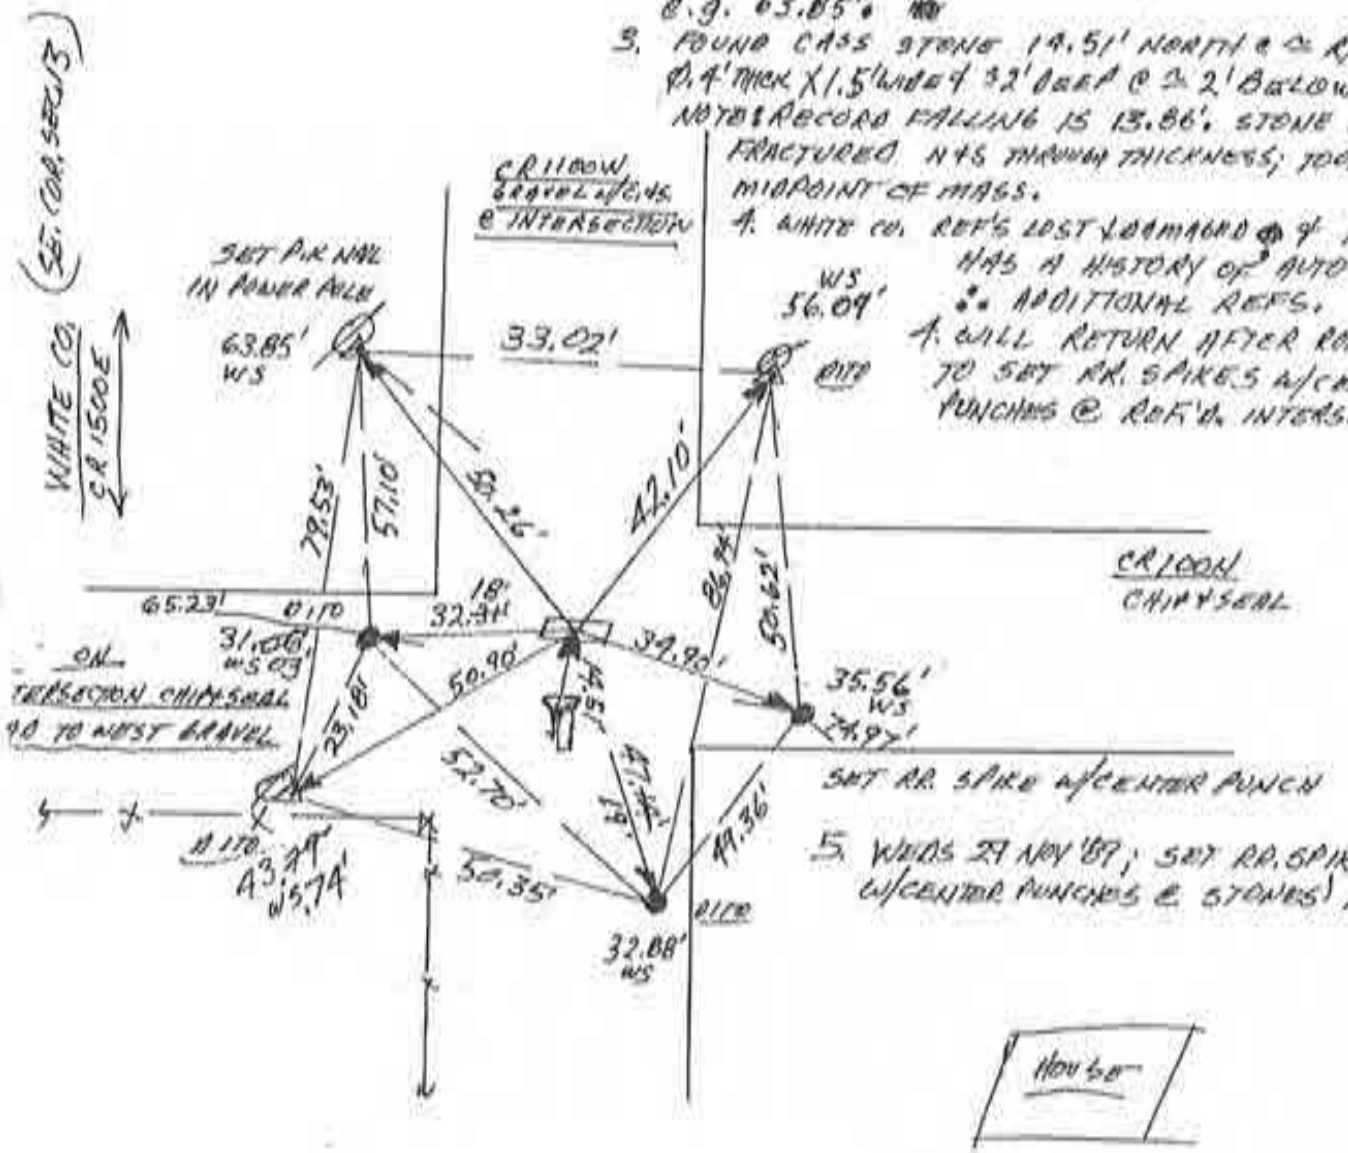 e.g. 63.85'.
3. FOUND CASS STONE 14.51' NORTH @ ≃ R
0.4' THICK X 1.5' WIDE & 32' DEEP @ ≃ 2' BELOW
NOTE: RECORD FALLING IS 13.86'. STONE
FRACTURED N&S THROUGH THICKNESS; TOO
MIDPOINT OF MASS.
4. WHITE CO. REF'S LOST & DAMAGED &
HAS A HISTORY OF AUTO
∴ ADDITIONAL REFS.
4. WILL RETURN AFTER RO
TO SET RR. SPIKES W/CE
PUNCHES @ REF'D. INTERS
(SE. COR. SEC. 13)
WHITE CO.
CR 1500E
CR 1100W
GRAVEL
@ INTERSECTION
SET P.K NAIL
IN POWER POLE
63.85'
WS
33.02'
WS
56.09'
DITO
79.53'
57.10'
42.10'
86.74'
50.62'
CR 100N
CHIP & SEAL
65.23'
DITO
18'
ON
TERSECTION CHIP & SEAL
TO WEST GRAVEL
23.18'
50.90'
39.90'
14.51'
35.56'
WS
74.97'
52.70'
49.36'
SET RR. SPIKE W/CENTER PUNCH
DITO
50.35'
DITO
32.88'
WS
5. WEDS 29 NOV '89; SET RR. SPIK
W/CENTER PUNCHES @ STONES
HOUSE